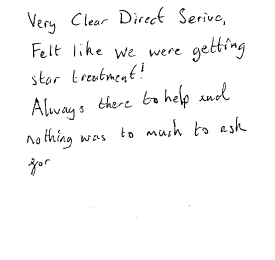 Very Clear Direct Serive,
Felt like we were getting
star treatment!
Always there to help and
nothing was to much to ask
for